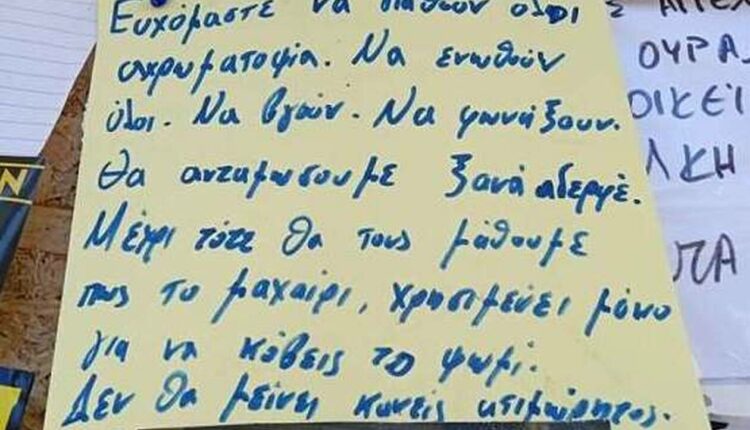 Ευχόμαστε να πάθουν όλοι
αχρωματοψία. Να ενωθούν
όλοι. Να βγούν. Να φωνάξουν.
Θα ανταμωσουμε ξανά αδερφέ.
Μέχρι τότε θα τους μάθουμε
πως το μαχαίρι, χρησιμεύει μόνο
για να κόβεις το ψωμί.
Δεν θα μείνει κανείς ατιμώρητος.
Ν
Σ ΑΓΓΕΛ
ΟΥΡΑ
ΟΙΚΕΙ
ΛΚΗ
ΠΑ